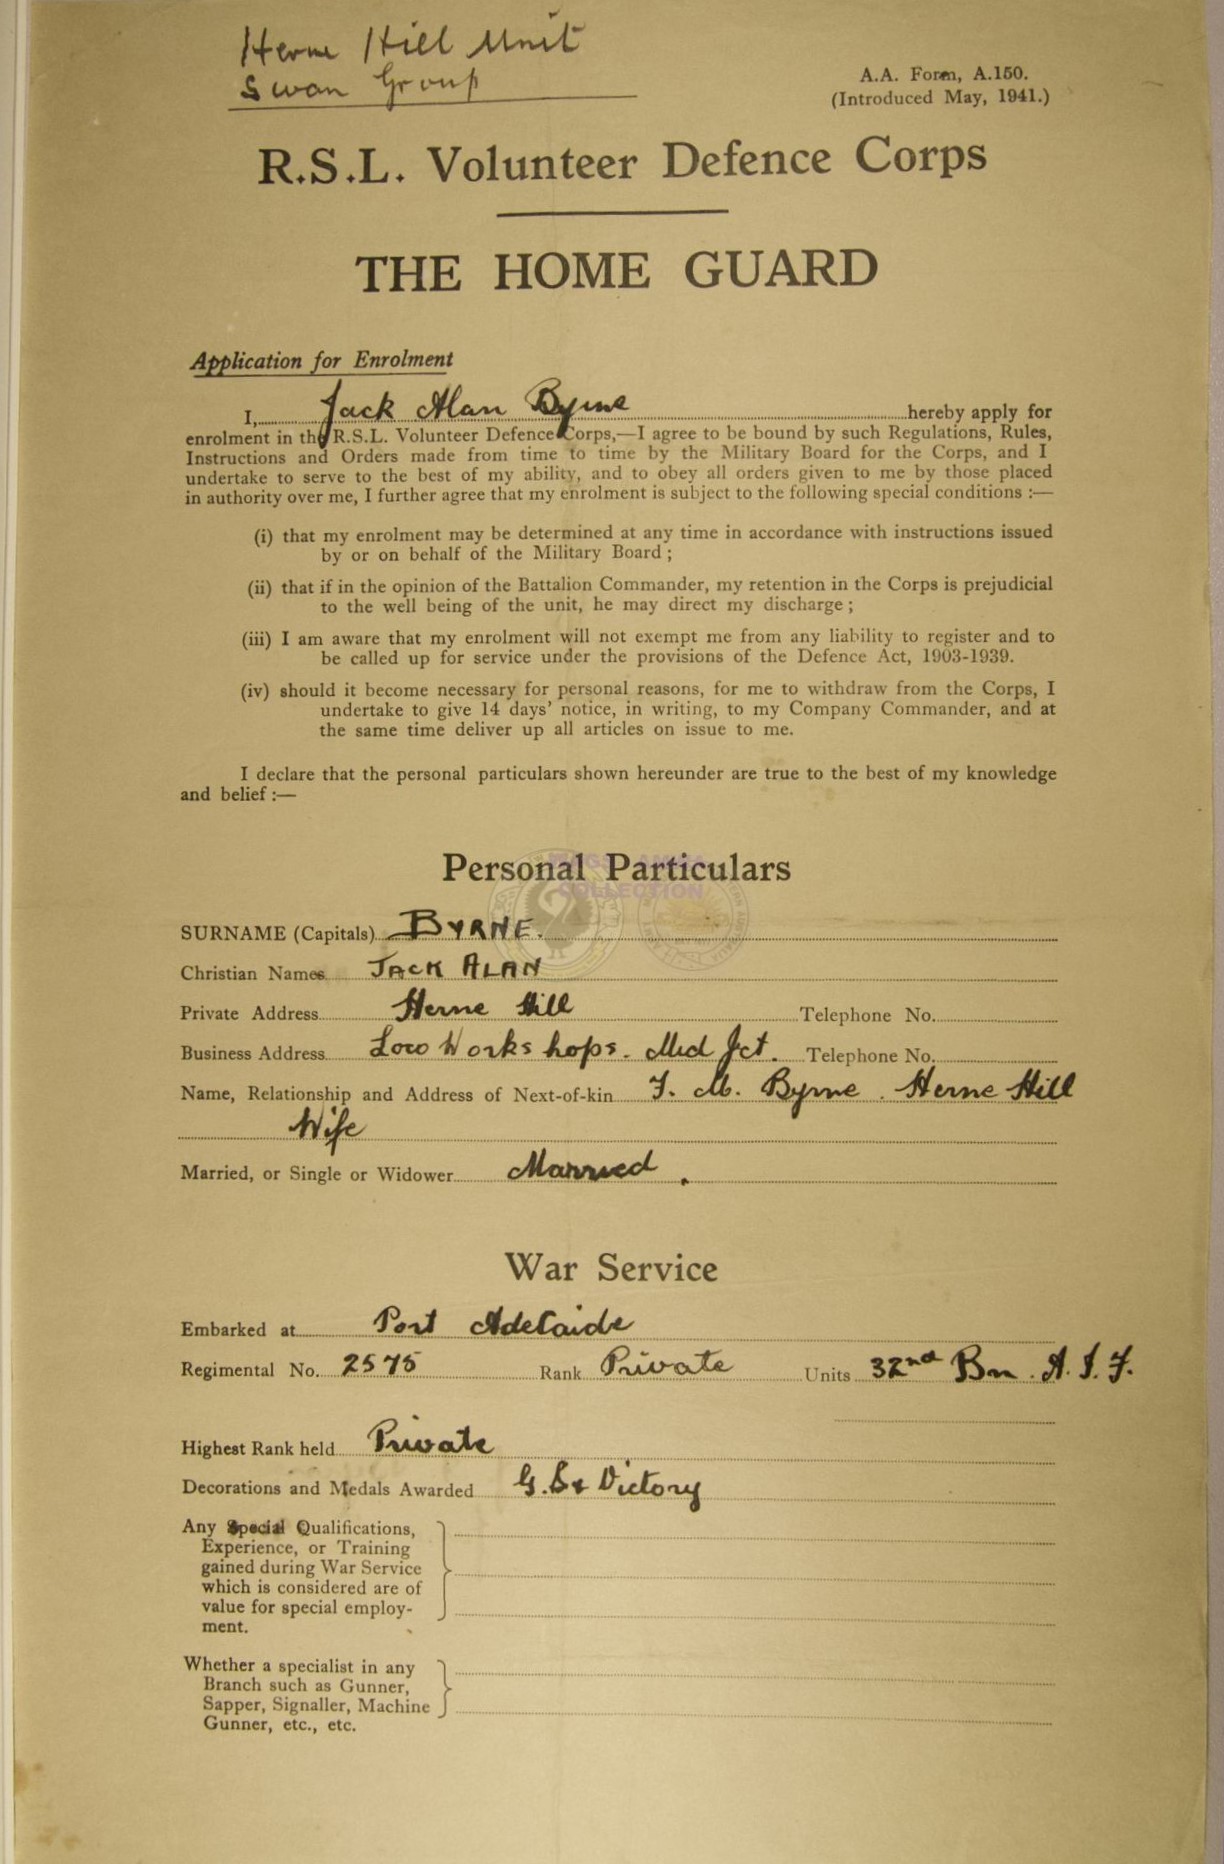 Herne Hill Unit
Swan Group
A.A. Form, A.150.
(Introduced May, 1941.)
R.S.L. Volunteer Defence Corps
THE HOME GUARD
Application for Enrolment
I, Jack Alan Byrne hereby apply for
enrolment in the R.S.L. Volunteer Defence Corps,—I agree to be bound by such Regulations, Rules,
Instructions and Orders made from time to time by the Military Board for the Corps, and I
undertake to serve to the best of my ability, and to obey all orders given to me by those placed
in authority over me, I further agree that my enrolment is subject to the following special conditions :—
(i) that my enrolment may be determined at any time in accordance with instructions issued
by or on behalf of the Military Board ;
(ii) that if in the opinion of the Battalion Commander, my retention in the Corps is prejudicial
to the well being of the unit, he may direct my discharge ;
(iii) I am aware that my enrolment will not exempt me from any liability to register and to
be called up for service under the provisions of the Defence Act, 1903-1939.
(iv) should it become necessary for personal reasons, for me to withdraw from the Corps, I
undertake to give 14 days' notice, in writing, to my Company Commander, and at
the same time deliver up all articles on issue to me.
I declare that the personal particulars shown hereunder are true to the best of my knowledge
and belief :—
Personal Particulars
COLLECTION
SURNAME (Capitals) BYRNE.
Christian Names JACK ALAN
Private Address Herne Hill Telephone No.
Business Address Loco Workshops. Mid Jct. Telephone No.
Name, Relationship and Address of Next-of-kin F. M. Byrne. Herne Hill
Wife
Married, or Single or Widower Married.
War Service
Embarked at Port Adelaide
Regimental No. 2575 Rank Private Units 32nd Bn. A.I.F.
Highest Rank held Private
Decorations and Medals Awarded G.S & Victory
Any Special Qualifications,
Experience, or Training
gained during War Service
which is considered are of
value for special employ-
ment.
Whether a specialist in any
Branch such as Gunner,
Sapper, Signaller, Machine
Gunner, etc., etc.